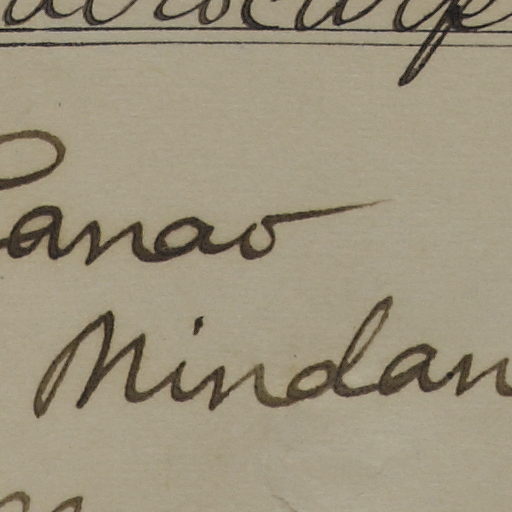 Lanao
Mindan